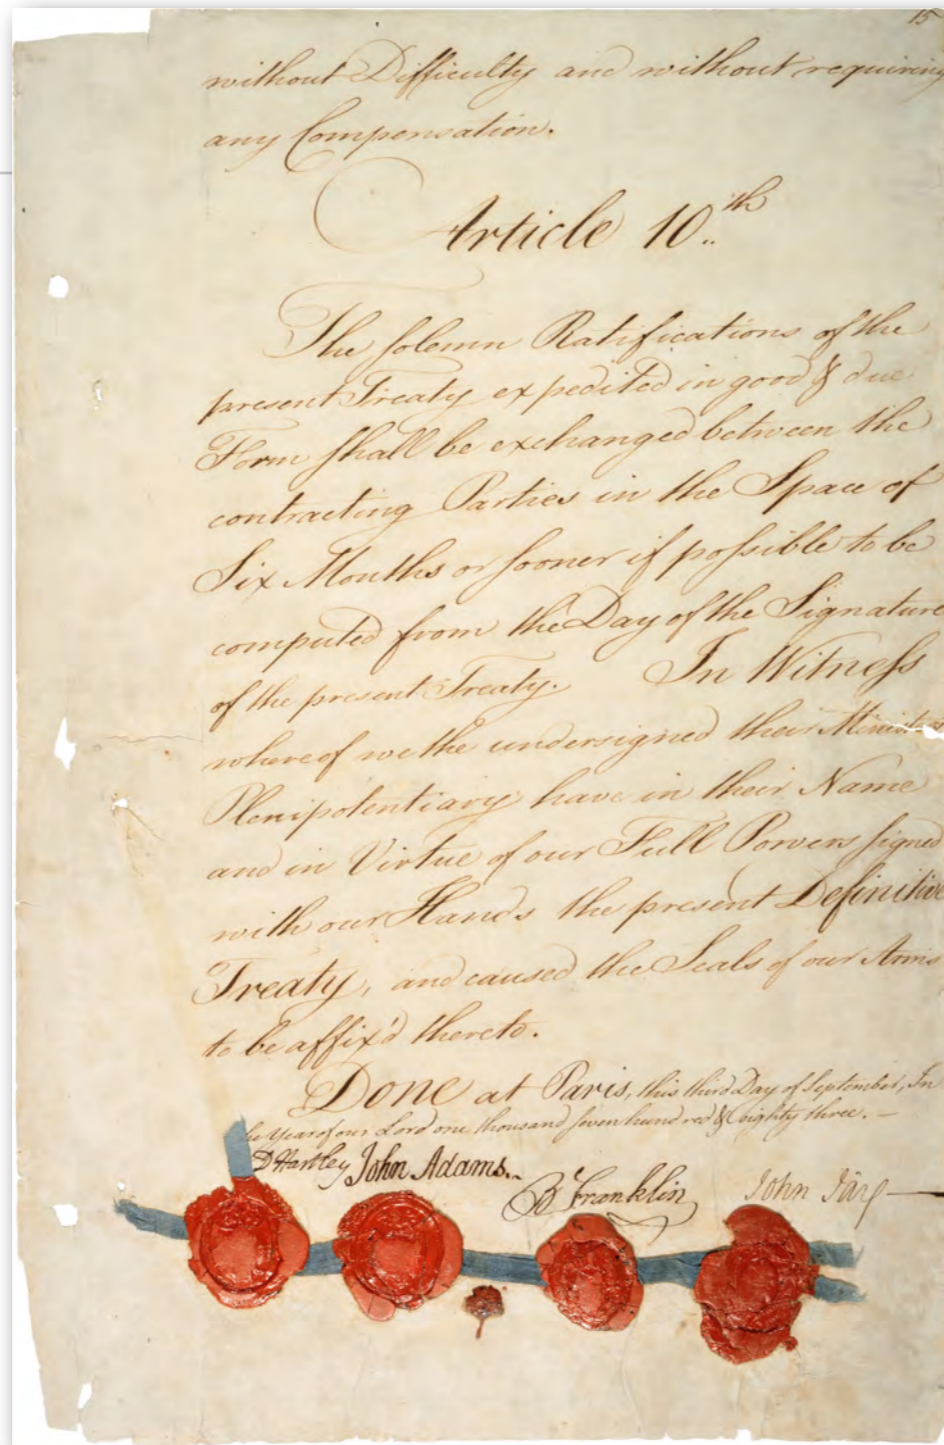 15
without Difficulty and without requiring
any Compensation.
Article 10.th
The solemn Ratifications of the
present Treaty expedited in good & due
Form shall be exchanged between the
contracting Parties in the Space of
Six Months or sooner if possible to be
computed from the Day of the Signature
of the present Treaty. In Witness
whereof we the undersigned their Ministers
Plenipotentiary have in their Name
and in Virtue of our Full Powers signed
with our Hands the present Definitive
Treaty, and caused the Seals of our Arms
to be affix'd thereto.
Done at Paris, this third Day of September, In
the Year of our Lord one thousand seven hundred & eighty three.—
D Hartley John Adams.
B Franklin John Jay